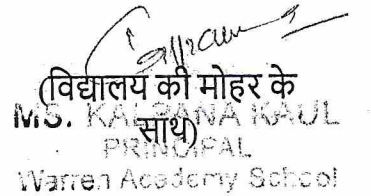 (विद्यालय की मोहर के
साथ)
MS. KALPANA KAUL
PRINCIPAL
Warren Academy School